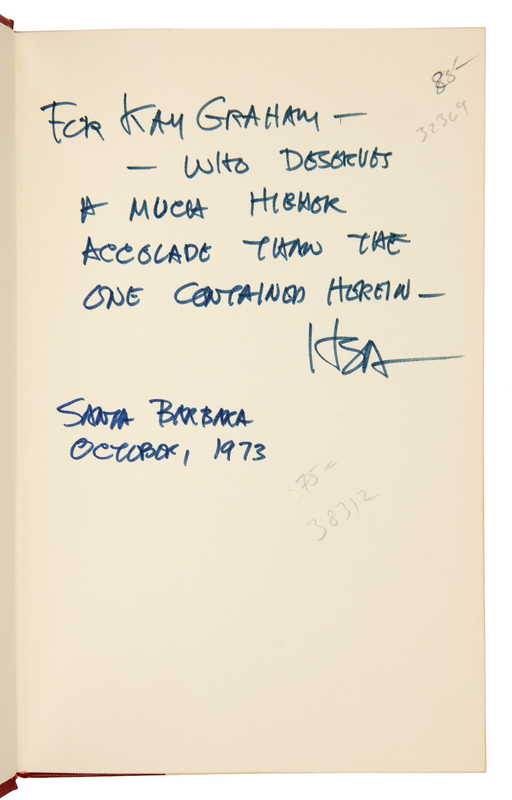 85-
32369
FOR KAY GRAHAM —
— WHO DESERVES
A MUCH HIGHER
ACCOLADE THAN THE
ONE CONTAINED HEREIN —
SANTA BARBARA
OCTOBER, 1973
75-
38312